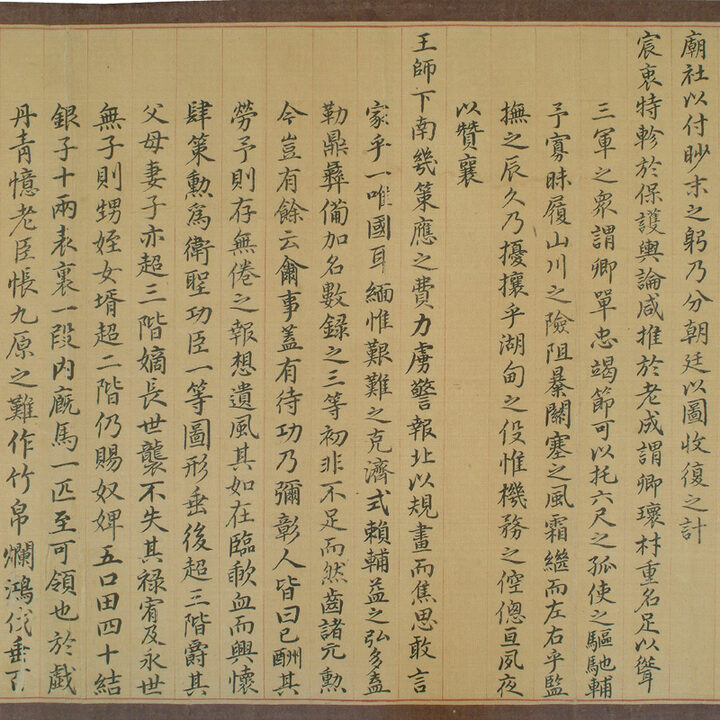 廟社以付眇末之躬乃分朝廷以圖收復之計
宸衷特軫於保護輿論咸推於老成謂卿瓌材重名足以聳
三軍之衆謂卿單忠竭節可以托六尺之孤使之驅馳輔
予寡昧履山川之險阻暴關塞之風霜繼而左右乎監
撫之辰久乃擾攘乎湖甸之役惟機務之倥傯亘夙夜
以贊襄
王師下南幾策應之費力虜警報北以規畫而焦思敢言
家乎一唯國耳緬惟艱難之克濟式賴輔益之弘多盍
勒鼎彛備加名數錄之三等初非不足而然齒諸元勲
今豈有餘云爾事蓋有待功乃彌彰人皆曰已酬其
勞予則存無倦之報想遺風其如在臨歃血而興懷
肆策勲爲衛聖功臣一等圖形垂後超三階爵其
父母妻子亦超三階嫡長世襲不失其祿宥及永世
無子則甥姪女壻超二階仍賜奴婢五口田四十結
銀子十兩表裏一段內廐馬一匹至可領也於戲
丹青憶老臣悵九原之難作竹帛爛鴻伐垂百